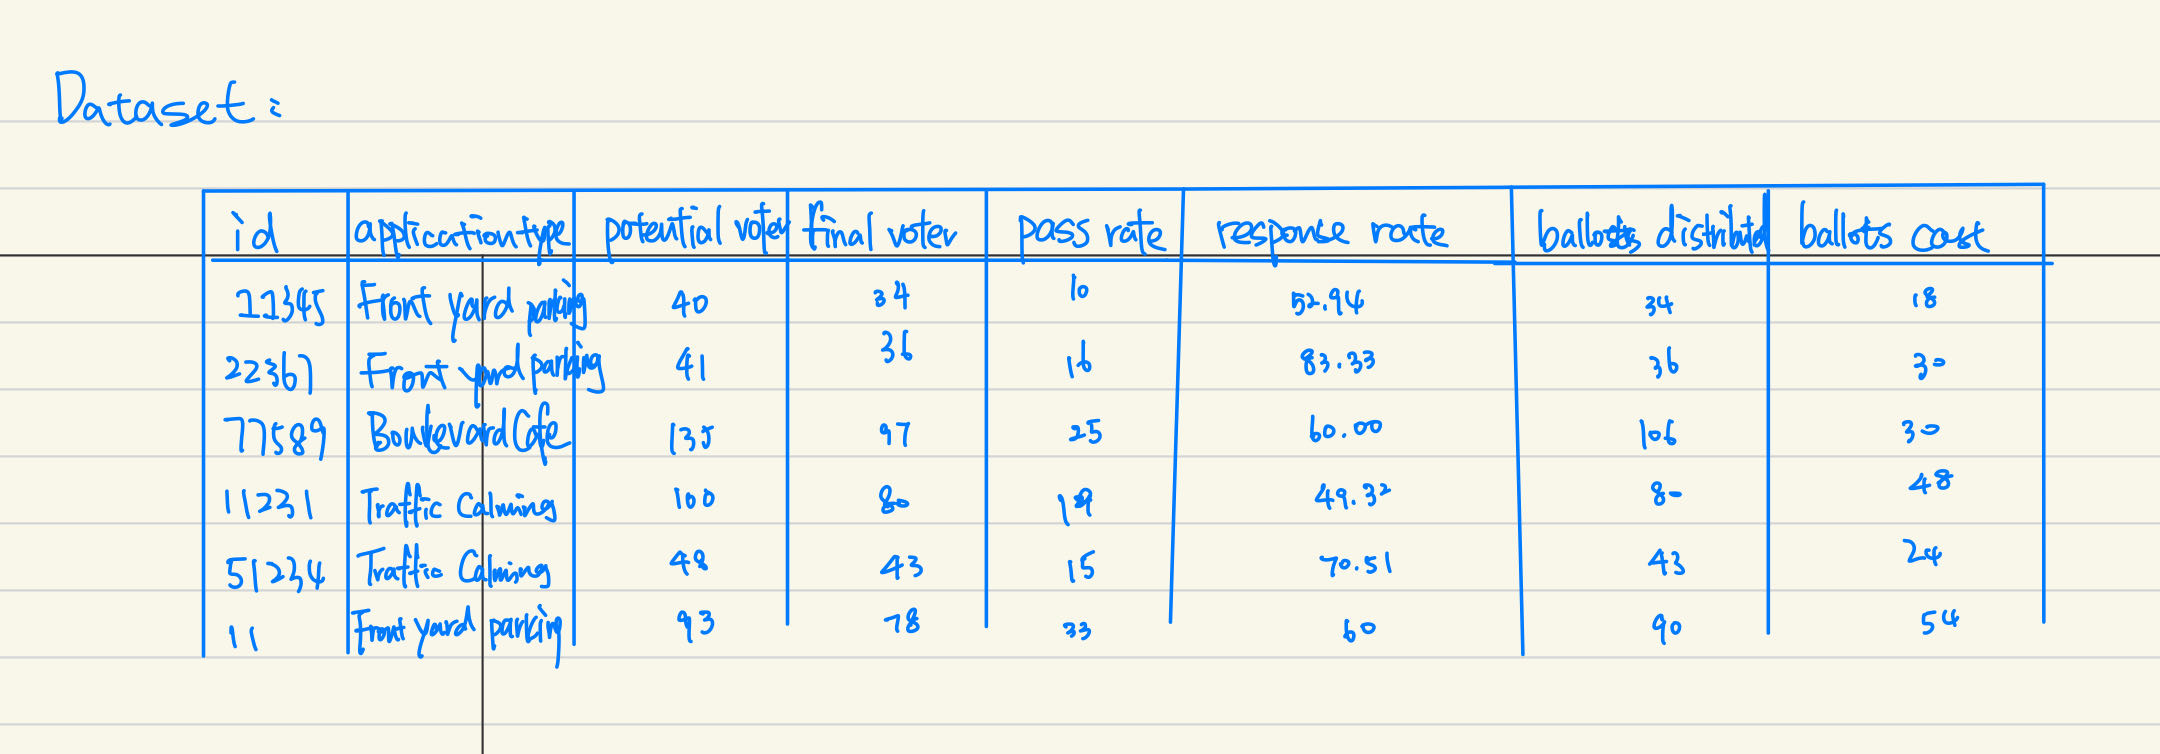 Dataset:
id application type potential voter final voter pass rate response rate ballots distributed ballots cost
11345 Front yard parking 40 34 10 52.94 34 18
22367 Front yard parking 41 36 16 83.33 36 30
77589 Boulevard Cafe 135 97 25 60.00 106 30
11231 Traffic Calming 100 80 19 49.32 80 48
51234 Traffic Calming 48 43 15 70.51 43 24
11 Front yard parking 93 78 33 60 90 54